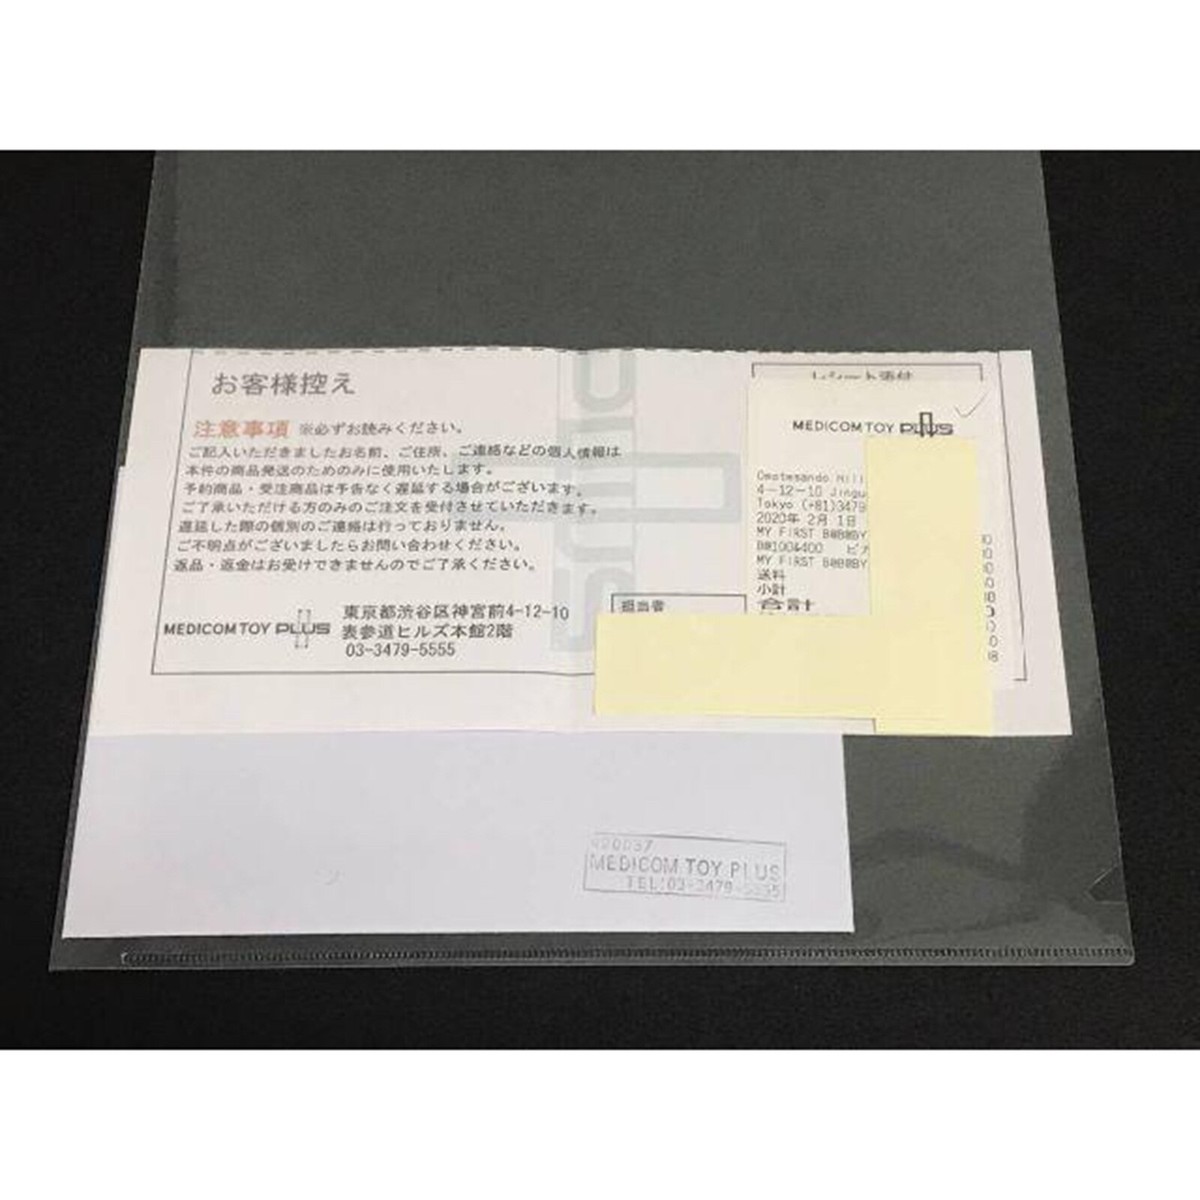 お客様控え
注意事項 ※必ずお読みください。
ご記入いただきましたお名前、ご住所、ご連絡などの個人情報は
本件の商品発送のためのみに使用いたします。
予約商品・受注商品は予告なく遅延する場合がございます。
ご了承いただける方のみのご注文を受付させていただきます。
遅延した際の個別のご連絡は行っておりません。
ご不明点がございましたらお問い合わせください。
返品・返金はお受けできませんのでご了承ください。
MEDICOM TOY PLUS
東京都渋谷区神宮前4-12-10
表参道ヒルズ本館2階
03-3479-5555
PLUS
担当者
レシート添付
MEDICOM TOY PLUS
Omotesando Hill
4-12-10 Jingu
Tokyo (+81)3479
2020年 2月 1日
MY FIRST B@B@BY
B@100&400 ピア
MY FIRST B@B@BY
送料
小計
合計
MEDICOM TOY PLUS
TEL:03-3479-5555